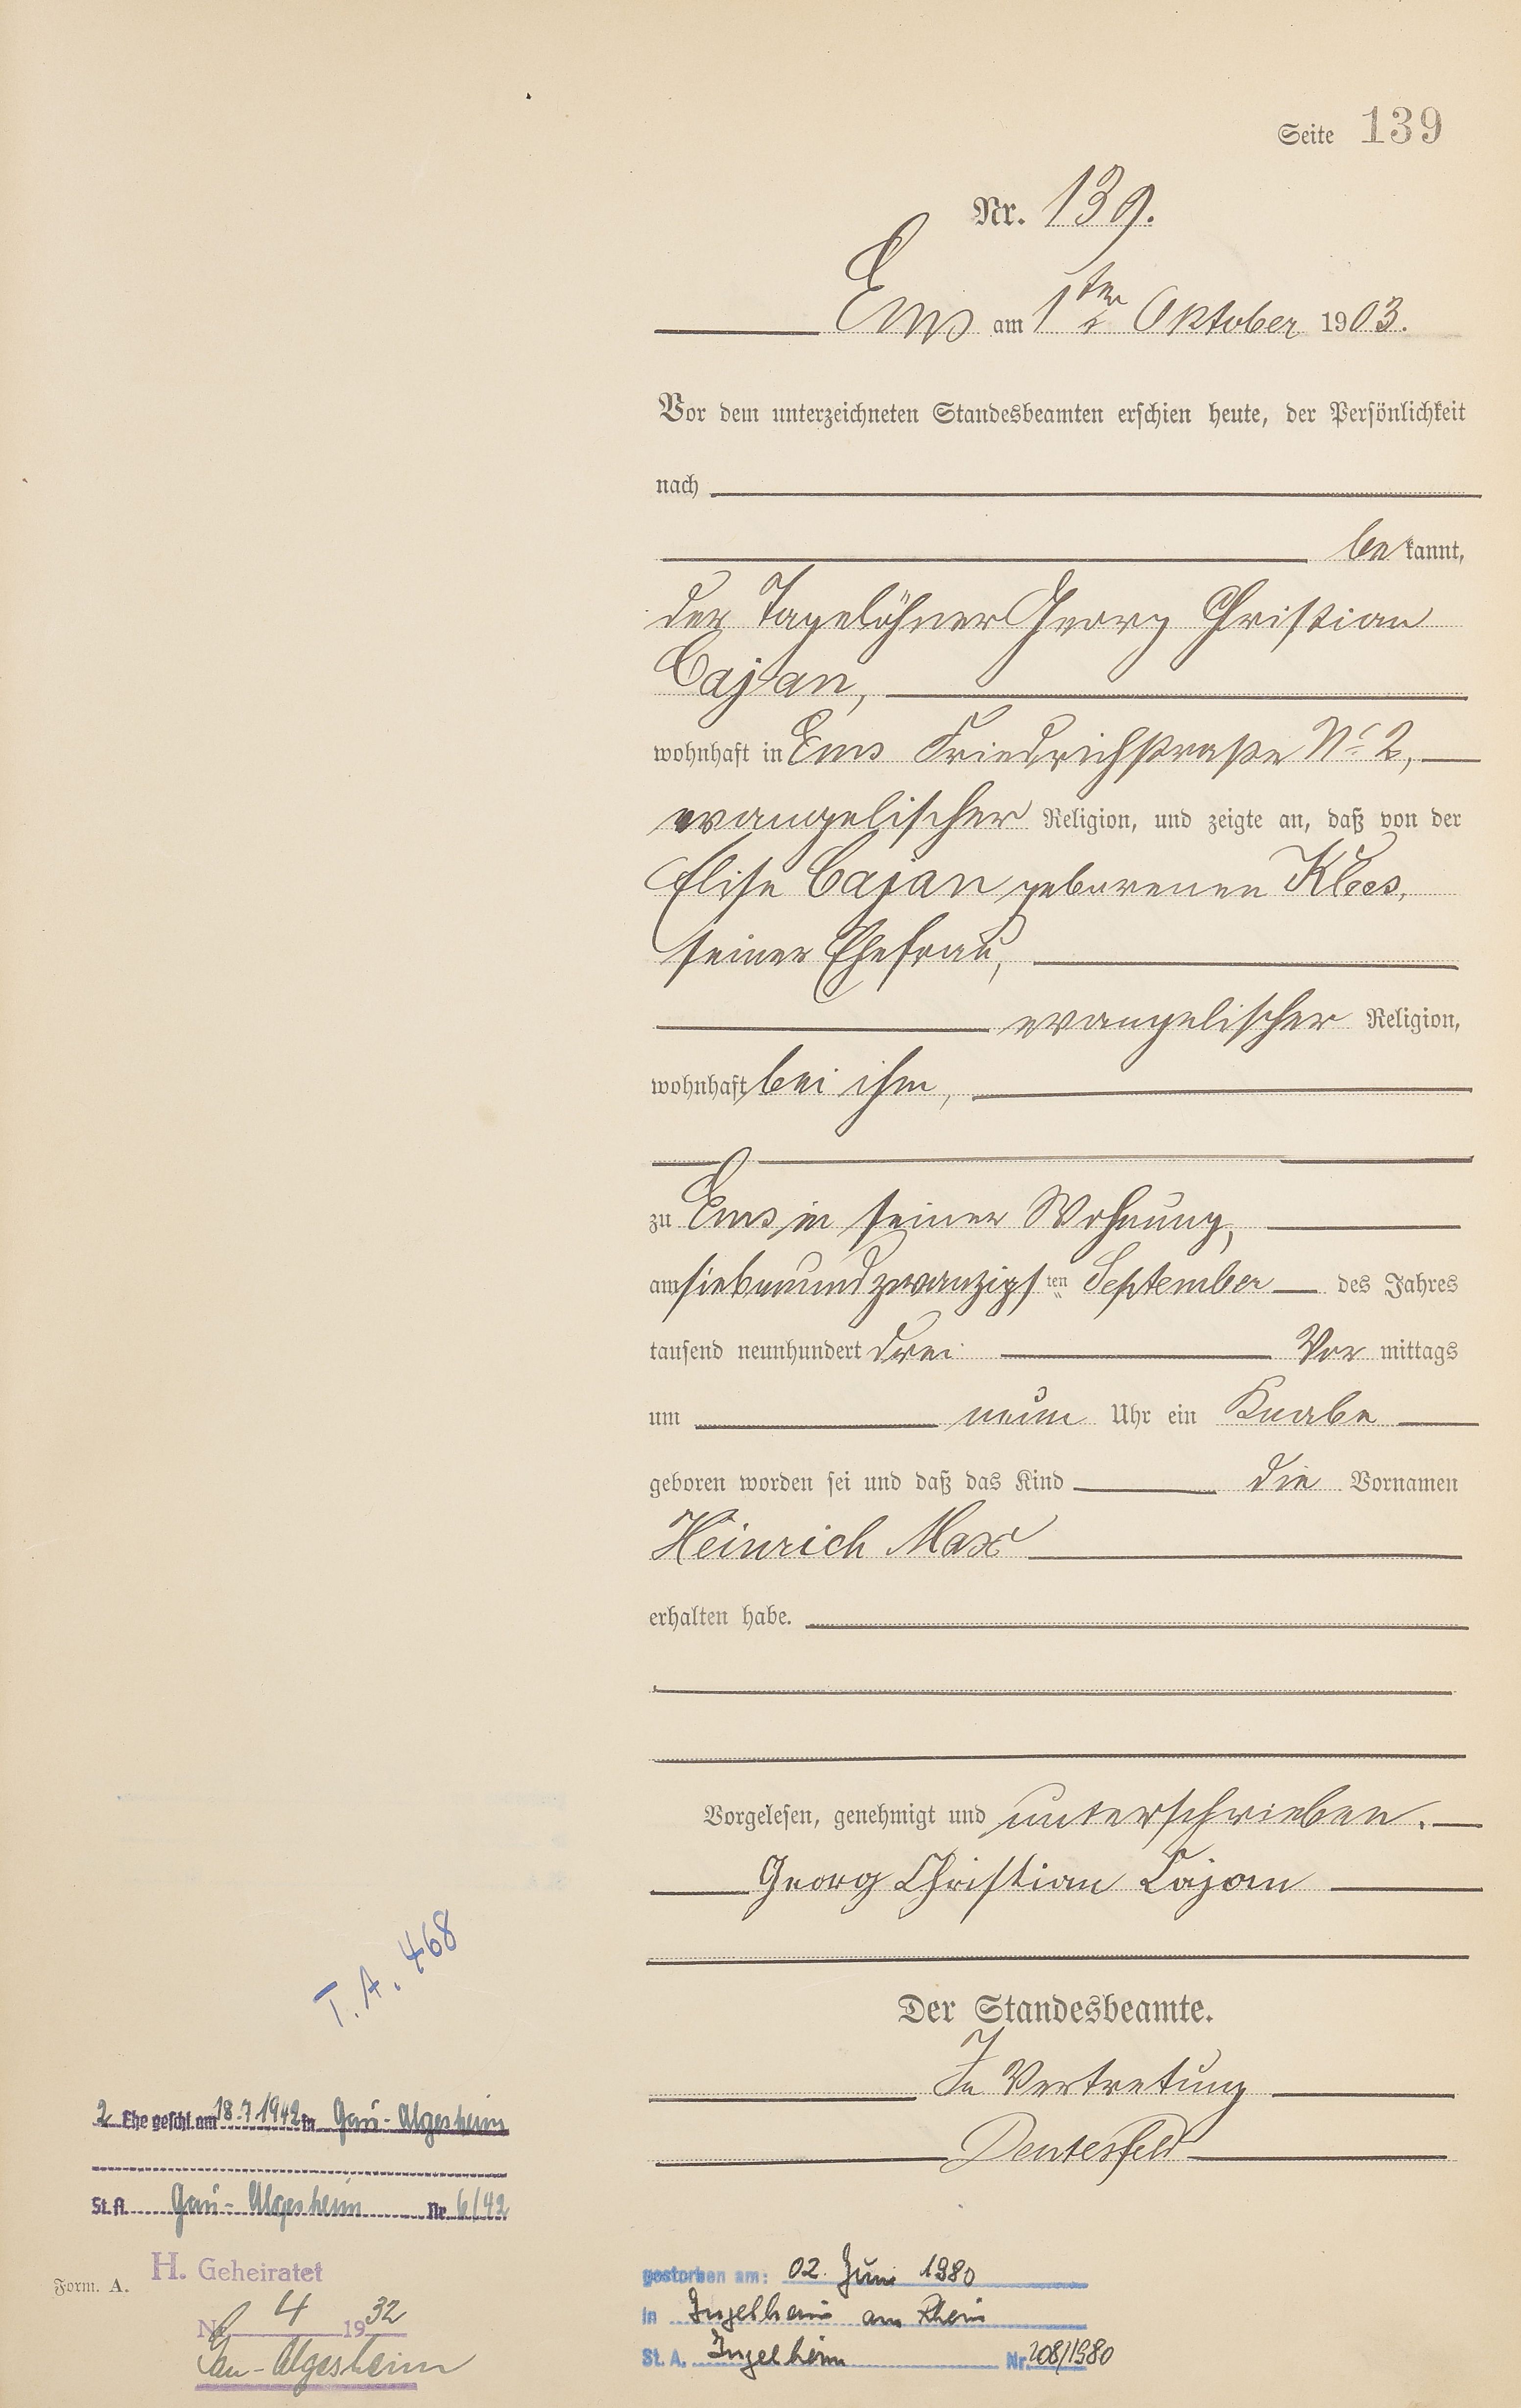 Seite 139
Nr. 139.
Ems am 1ten Oktober 1903.
Vor dem unterzeichneten Standesbeamten erschien heute, der Persönlichkeit
nach
bekannt,
der Tagelöhner Georg Christian
Cajan,
wohnhaft in Ems Friedrichstraße No 2,
evangelischer Religion, und zeigte an, daß von der
Elise Cajan geborenen Klees,
seiner Ehefrau,
evangelischer Religion,
wohnhaft bei ihm,
zu Ems in seiner Wohnung,
am siebenundzwanzigsten September des Jahres
tausend neunhundert drei Vormittags
um neun Uhr ein Knabe
geboren worden sei und daß das Kind die Vornamen
Heinrich Max
erhalten habe.
Vorgelesen, genehmigt und unterschrieben.
Georg Christian Cajan
Der Standesbeamte.
In Vertretung
T. A. 468
2 Ehe geschl. am 18.7.1942 in Gau-Algesheim
St.A. Gau-Algesheim Nr. 6/42
H. Geheiratet
Nr. 4 1932
Gau-Algesheim
Form. A.
gestorben am: 02. Juni 1980
in Ingelheim am Rhein
St. A. Ingelheim Nr. 208/1980